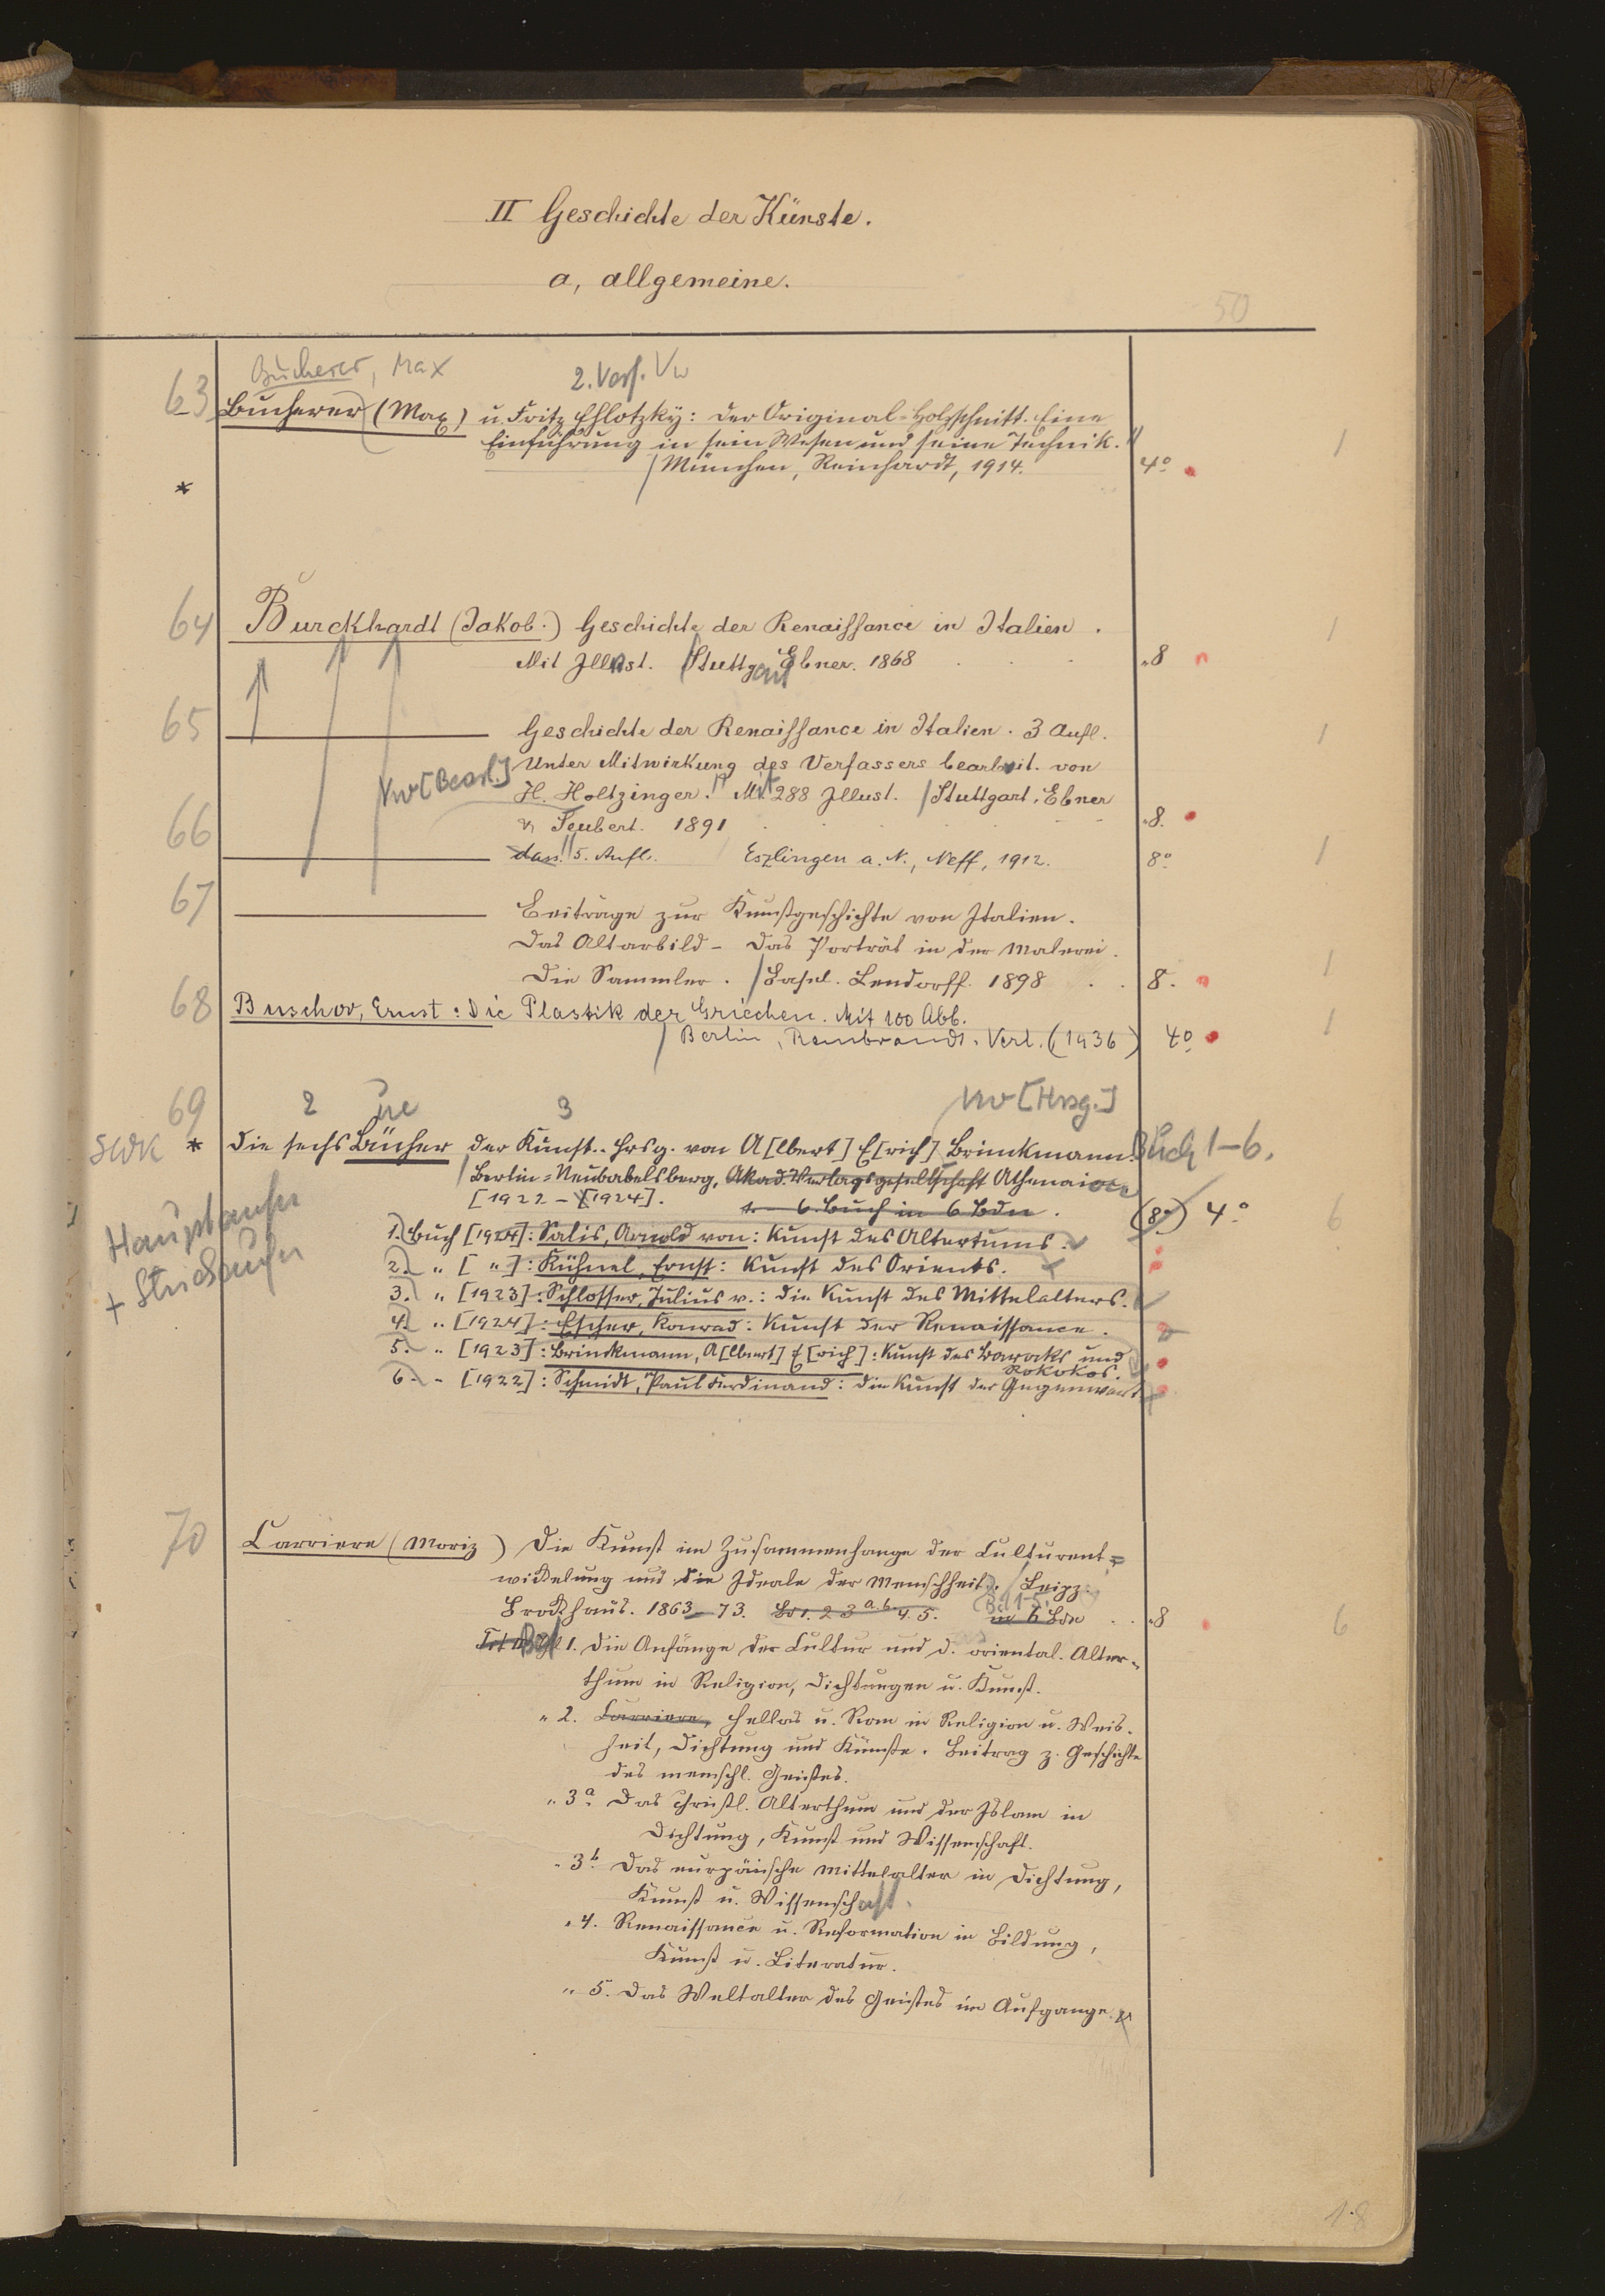 II Geschichte der Künste.
a, allgemeine.
50
Bucherer, Max
2. Verf. Vw
63 Bucherer (Max) u. Fritz Ehlotzky: Der Original-Holzschnitt. Eine
Einführung in sein Wesen und seine Technik. 1
/ München, Reinhardt, 1914. 4°
*
64 Burckhardt (Jakob.) Geschichte der Renaissance in Italien. 1
Mit Illust. Stuttgart Ebner. 1868 8
65 Geschichte der Renaissance in Italien. 3 Aufl. 1
Unter Mitwirkung des Verfassers bearbeit. von
Vw [Bearb.] H. Holtzinger. Mit 288 Illust. / Stuttgart, Ebner
& Seubert. 1891 8.
66 dass. 5. Aufl. Eszlingen a. N., Neff, 1912. 8° 1
67 Beiträge zur Kunstgeschichte von Italien.
Das Altarbild - Das Porträt in der Malerei.
Die Sammler. / Basel. Lendorff. 1898 8. 1
68 Buschor, Ernst: Die Plastik der Griechen. Mit 100 Abb. 1
/ Berlin, Rembrandt-Verl. (1936) 4°
69 2 3 Vw [Hrsg.]
SWK * Die sechs Bücher der Kunst. Hrsg. von A[lbert] E[rich] Brinckmann. Buch 1-6.
/ Berlin-Neubabelsberg, Akad. Verlagsgesellschaft Athenaion
[1922-[1924]. 1. - 6. Buch in 6 Bdn. (8°) 4° 6
Hauptaufn
+ Stichaufn
1. Buch [1924]: Salis, Arnold von: Kunst des Altertums.
2. " [ " ]: Kühnel, Ernst: Kunst des Orients.
3. " [1923]: Schlosser, Julius v.: Die Kunst des Mittelalters.
4. " [1924]: Escher, Konrad: Kunst der Renaissance.
5. " [1923]: Brinckmann, A[lbert] E[rich]: Kunst des Baroks und
Rokokos.
6. " [1922]: Schmidt, Paul Ferdinand: Die Kunst der Gegenwart
70 Carriere (Moriz) Die Kunst im Zusammenhange der Culturent=
wickelung und die Ideale der Menschheit. / Leipz.
Brockhaus. 1863-73. Bd 1. 2 3 a.b. 4. 5. Bd 1-5. in 6 Bdn 8 6
Bd 1. Die Anfänge der Cultur und d. oriental. Alter=
thum in Religion, Dichtungen u. Kunst.
" 2. Carriere, Hellas u. Rom in Religion u. Weis-
heit, Dichtung und Künste. Beitrag z. Geschichte
des menschl. Geistes.
" 3a Das christl. Alterthum und der Islam in
Dichtung, Kunst und Wissenschaft.
" 3b Das eurpäische Mittelalter in Dichtung,
Kunst u. Wissenschaft.
" 4. Renaissance u. Reformation in Bildung,
Kunst u. Literatur.
" 5. Das Weltalter des Geistes im Aufgange.
18